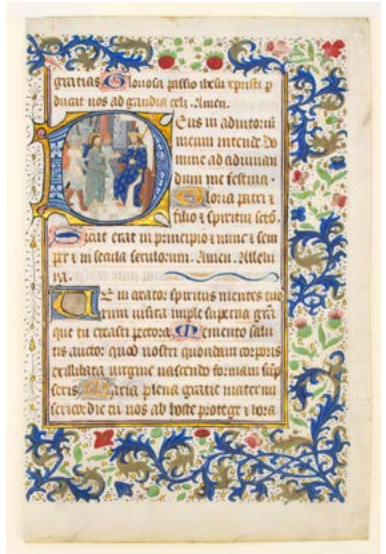 gratias Gloriosa passio ihesu xpristi p
ducat nos ad gaudia celi. Amen.
Deus in adiutoriū
meum intende. Do
mine ad adiuuan
dum me festina.
Gloria patri ⁊
filio ⁊ spiritui scto.
Sicut erat in principio ⁊ nunc ⁊ sem
per ⁊ in secula seculorum. Amen. Allelui
ia.
Veni creator spiritus mentes tuo
rum visita imple superna grā
que tu creasti pectora. Memento salu
tis auctor quod nostri quondam corporis
ex illibata virgine nascendo formam sūp
seris Maria plena gratie mater mi
sericordie tu nos ab hoste protege ⁊ hora